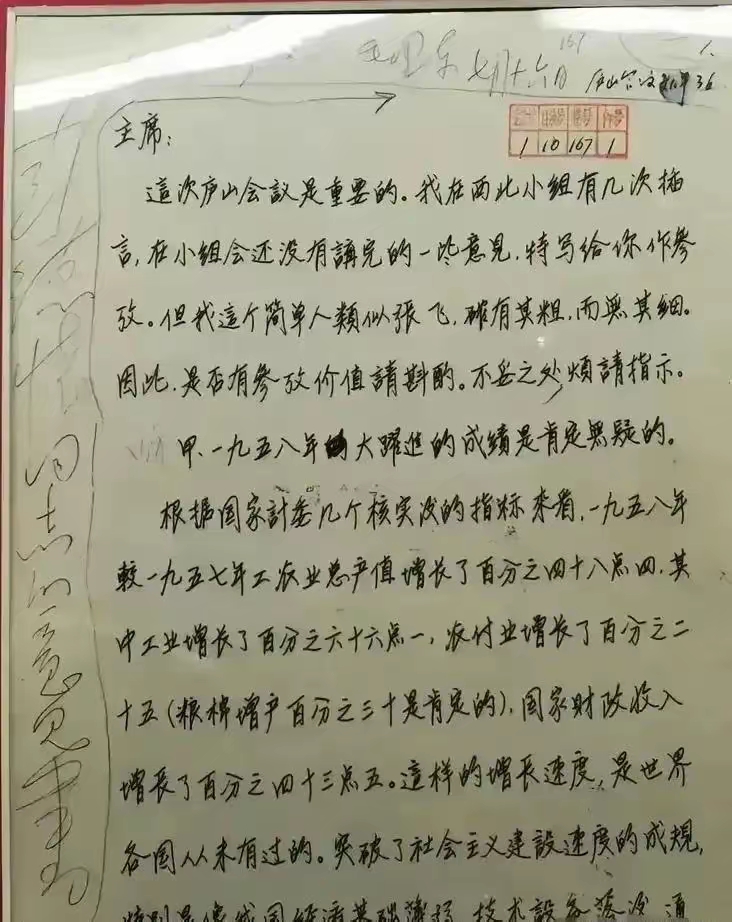 七月十六日
167
1.
主席：
這次庐山会议是重要的。我在西北小组有几次插
言，在小组会还没有講完的一些意見，特写给你作參
攷。但我這个简单人類似張飞，確有其粗，而無其細。
因此，是否有參攷价值請斟酌。不妥之处煩請指示。
甲、一九五八年大躍進的成績是肯定無疑的。
根据国家計委几个核实后的指标来看，一九五八年
較一九五七年工农业总产值增长了百分之四十八点四，其
中工业增长了百分之六十六点一，农付业增长了百分之二
十五（粮棉增产百分之三十是肯定的），国家财政收入
增长了百分之四十三点五。這样的增长速度，是世界
各国从未有过的。突破了社会主义建設速度的成規，
特别是像我国经济基础薄弱，技术設备落後，通
1 10 167 1
彭德怀同志的意見书